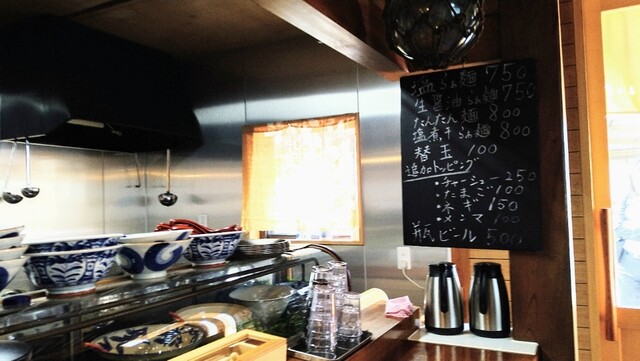 塩らぁ麺 750
生醤油らぁ麺 750
たんたん麺 800
塩煮干らぁ麺 800
替玉 100
追加トッピング
・チャーシュー 250
・たまご 100
・ネギ 150
・メンマ 100
瓶ビール 500